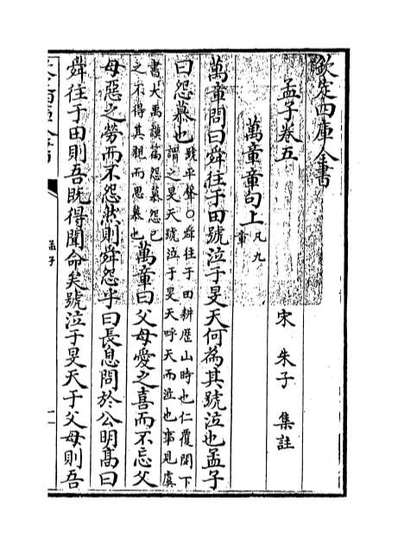 欽定四庫全書
孟子卷五
宋 朱子 集註
萬章章句上凡九章
萬章問曰舜往于田號泣于旻天何為其號泣也孟子
曰怨慕也號平聲○舜往于田耕歷山時也仁覆閔下謂之旻天號泣于旻天呼天而泣也事見虞
書大禹謨篇怨慕怨己之不得其親而思慕也萬章曰父母愛之喜而不忘父
母惡之勞而不怨然則舜怨乎曰長息問於公明髙曰
舜往于田則吾既得聞命矣號泣于旻天于父母則吾
孟子